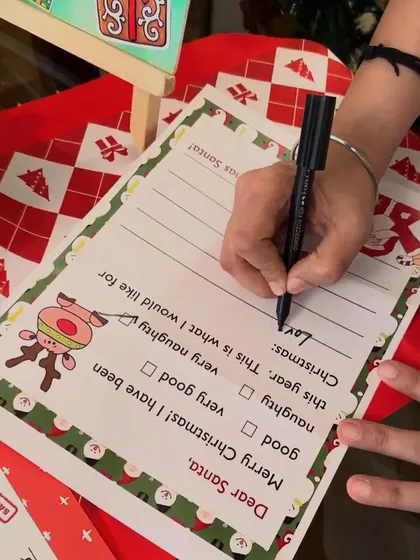 Dear Santa,
Merry Christmas! I have been
good very good
naughty very naughty
this year. This is what I would like for
Christmas:
Lov
mas Santa!